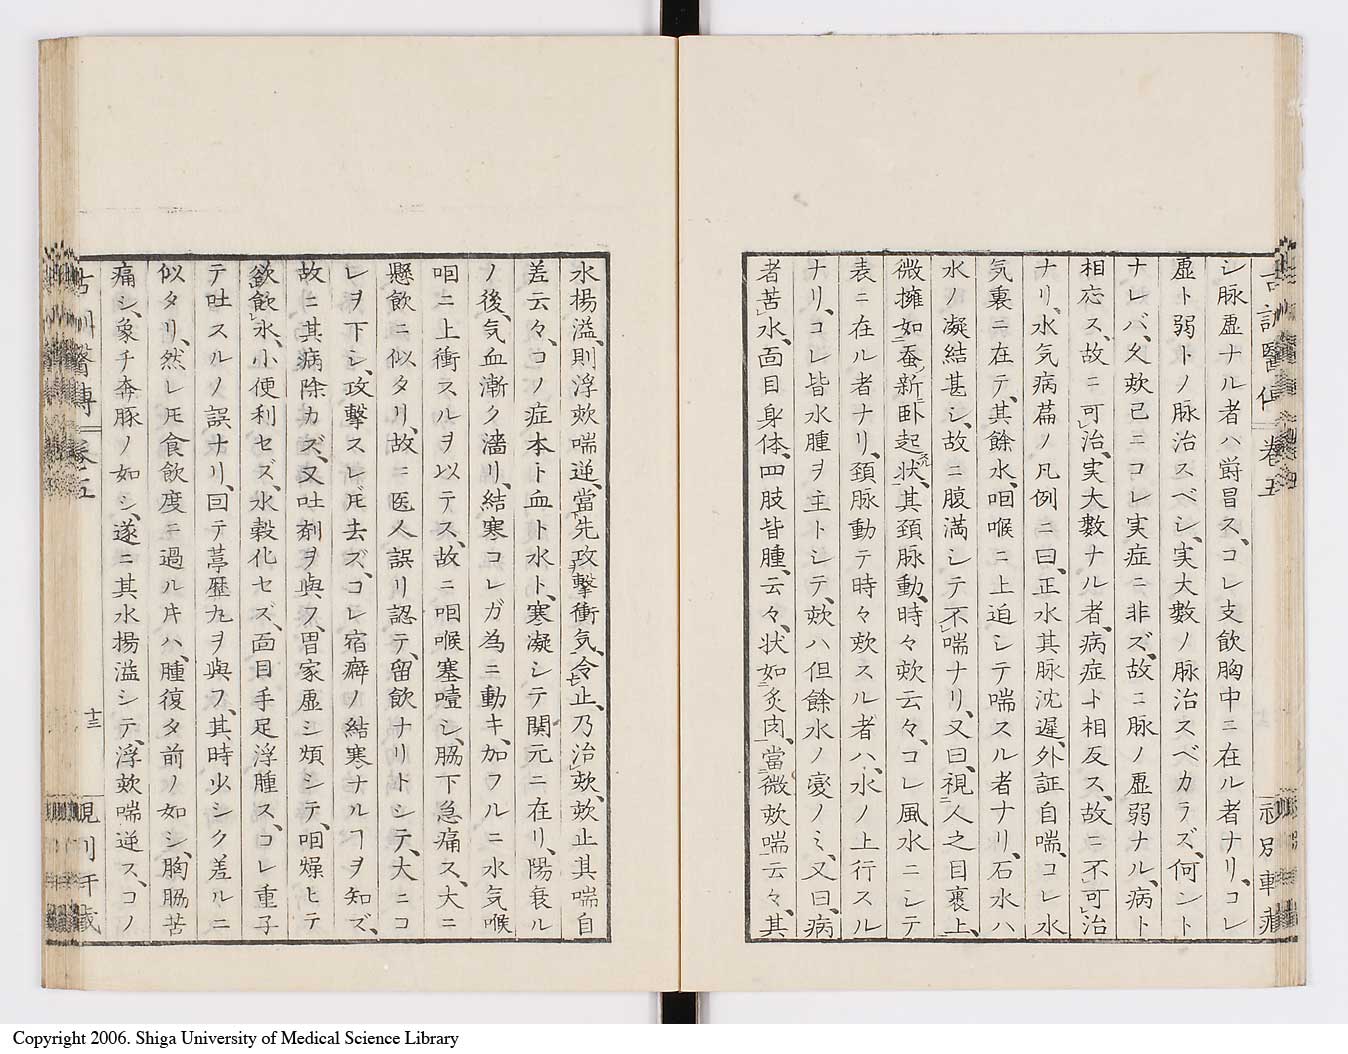 古訓醫傳 卷五
シ脉虛ナル者ハ欝冒ス、コレ支飮胸中ニ在ル者ナリ、コレ
虛ト弱トノ脉治スベシ、実大數ノ脉治スベカラズ、何ント
ナレバ、久欬已ミコレ実症ニ非ズ、故ニ脉ノ虛弱ナル、病ト
相応ス、故ニ可治、実大數ナル者、病症ト相反ス、故ニ不可治
ナリ、水気病篇ノ凡例ニ曰、正水其脉沈遲、外証自喘、コレ水
気裏ニ在テ、其餘水、咽喉ニ上迫シテ喘スル者ナリ、石水ハ
水ノ凝結甚シ、故ニ腹満シテ不喘ナリ、又曰、視人之目裹上、
微擁如蚕新卧起状、其頚脉動、時々欬云々、コレ風水ニシテ
表ニ在ル者ナリ、頚脉動テ時々欬スル者ハ、水ノ上行スル
ナリ、コレ皆水腫ヲ主トシテ、欬ハ但餘水ノ変ノミ、又曰、病
者苦水、面目身体、四肢皆腫、云々、状如炙肉、當微欬喘云々、其
水揚溢、則浮欬喘逆、當先攻撃衝気、令止、乃治欬、欬止其喘自
差云々、コノ症本ト血ト水ト、寒凝シテ関元ニ在リ、陽衰ル
ノ後、気血漸ク濇リ、結寒コレガ為ニ動キ、加フルニ水気喉
咽ニ上衝スルヲ以テス、故ニ咽喉塞噎シ、脇下急痛ス、大ニ
懸飮ニ似タリ、故ニ医人誤リ認テ、留飮ナリトシテ、大ニコ
レヲ下シ、攻撃スレドモ去ズ、コレ宿癖ノ結寒ナルヿヲ知ズ、
故ニ其病除カズ、又吐剤ヲ與フ、胃家虛シ煩シテ、咽燥ヒテ
欲飮水、小便利セズ、水穀化セズ、面目手足浮腫ス、コレ重子
テ吐スルノ誤ナリ、曰テ葶歴丸ヲ與フ、其時少シク差ルニ
似タリ、然レモ食飮度ニ過ル片ハ、腫復タ前ノ如シ、胸脇苦
痛シ、象チ奔豚ノ如シ、遂ニ其水揚溢シテ、浮欬喘逆ス、コノ
古訓醫傳 卷五
十三
Copyright 2006. Shiga University of Medical Science Library